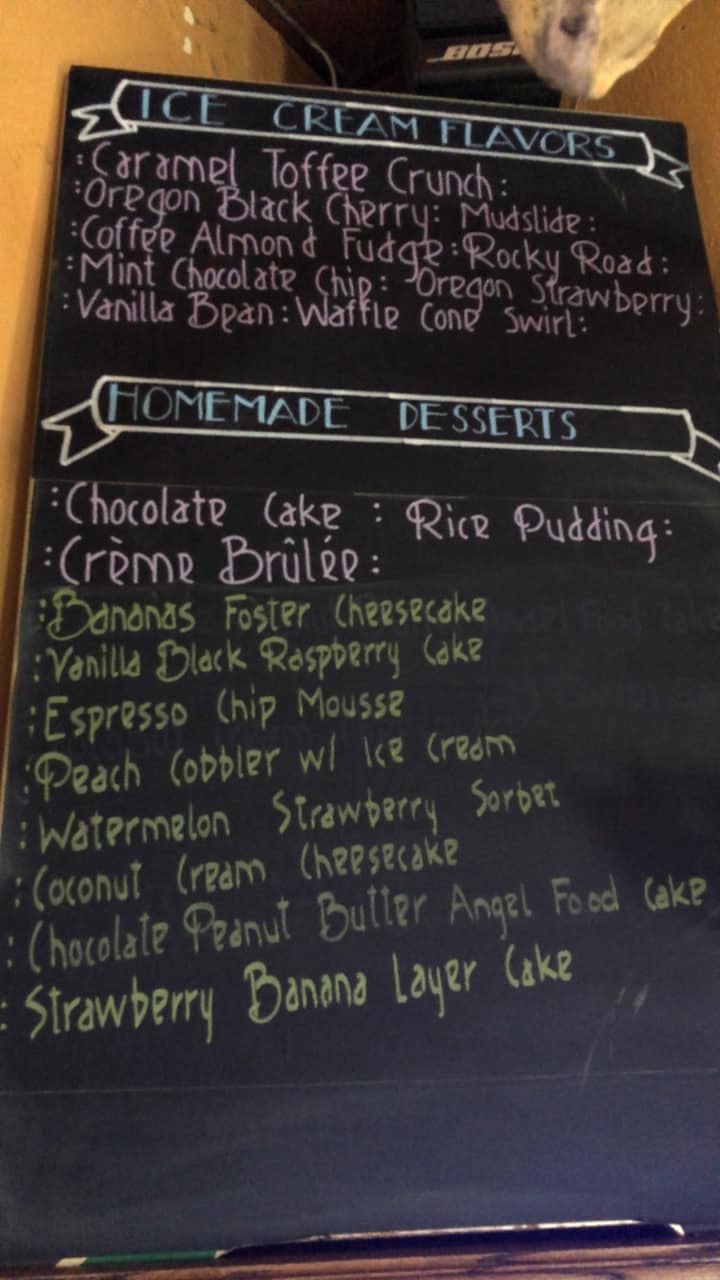 BOSE
ICE CREAM FLAVORS
:Caramel Toffee Crunch:
:Oregon Black Cherry: Mudslide:
:Coffee Almond Fudge:Rocky Road:
:Mint Chocolate Chip: Oregon Strawberry:
:Vanilla Bean:Waffle Cone Swirl:
HOMEMADE DESSERTS
:Chocolate Cake : Rice Pudding:
:Crème Brûlée:
:Bananas Foster Cheesecake
:Vanilla Black Raspberry Cake
:Espresso Chip Mousse
:Peach Cobbler w/ Ice Cream
:Watermelon Strawberry Sorbet
:Coconut Cream Cheesecake
:Chocolate Peanut Butter Angel Food Cake
:Strawberry Banana Layer Cake